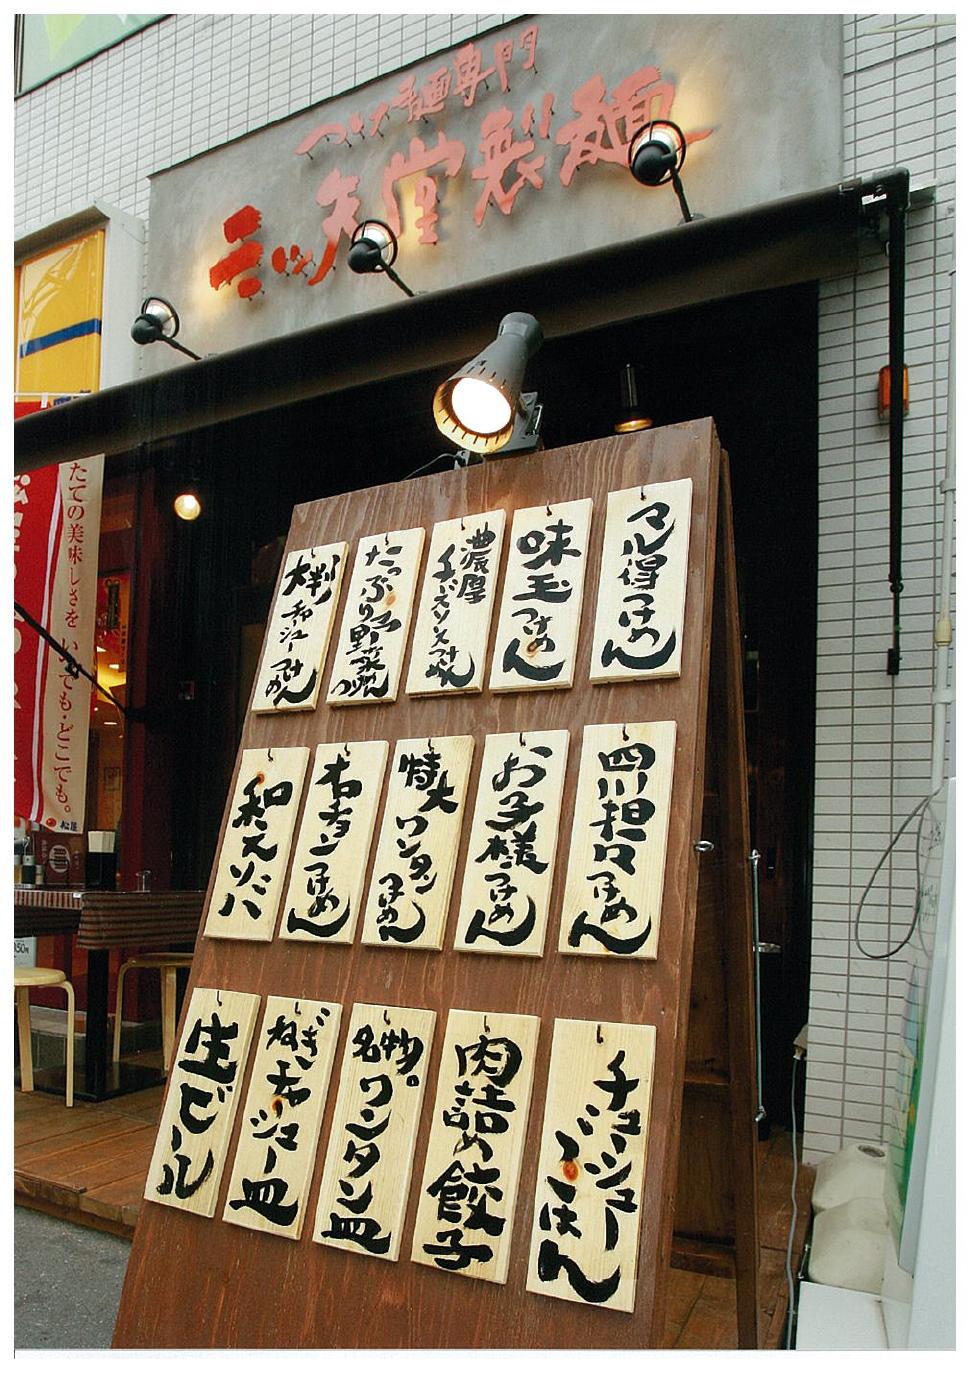 つけ麺専門
三ツ矢堂製麺
たての美味しさを いつでも・どこでも。
松屋
マル得つけめん
味玉つけめん
濃厚チーズソースつけめん
たっぷり野菜つけめん
大判チャーシューつけめん
四川担々つけめん
お子様つけめん
特大ワンタンつけめん
和えソバ
チャーシューごはん
肉詰め餃子
名物ワンタン皿
ねぎチャーシュー皿
生ビール